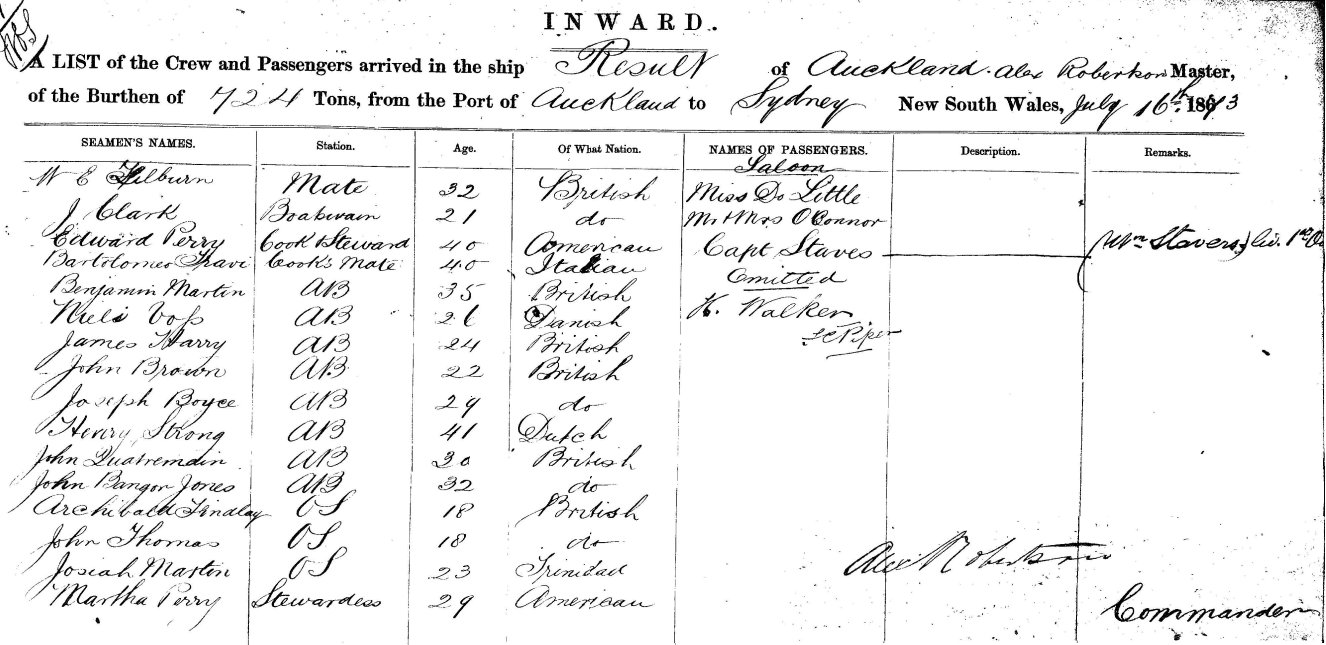 INWARD.
A LIST of the Crew and Passengers arrived in the ship Result of Auckland. Alex Robertson Master,
of the Burthen of 724 Tons, from the Port of Auckland to Sydney New South Wales, July 16th 1873
SEAMEN'S NAMES. Station. Age. Of What Nation. NAMES OF PASSENGERS. Description. Remarks.
Saloon
W E Filburn Mate 32 British Miss Do Little
J Clark Boatswain 21 do Mr & Mrs O'Connor
Edward Perry Cook & Steward 40 American Capt Staves Wm Stavers
Bartolomeo Cook's Mate 40 Italian Omitted
Benjamin Martin AB 35 British H. Walker
Niels Voss AB 26 Danish Piper
James Harry AB 24 British
John Brown AB 22 British
Joseph Boyce AB 29 do
Henry Strong AB 41 Dutch
John Quatremain AB 30 British
John Bangor Jones AB 32 do
Archibald Findlay OS 18 British
John Thomas OS 18 do
Josiah Martin OS 23 Trinidad
Alex Robertson
Martha Perry Stewardess 29 American
Commander